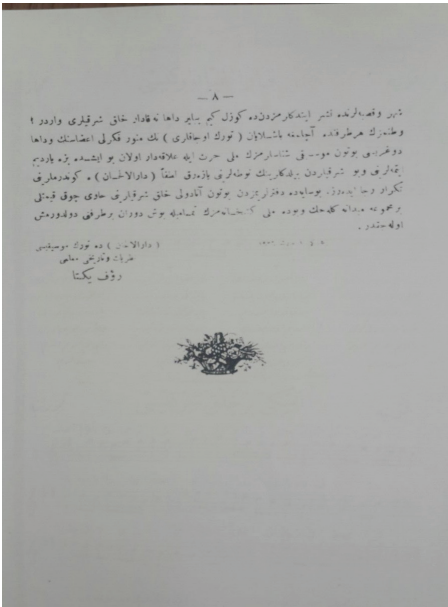 — ٨ —
شهر وقصبه‌لرنده نشر ایتدكلرمزدن‌ده كوزل كیم بیلیر داها نه‌قادار خلق شرقیلری واردر !
وطنمزك هرطرفنده آچلمغه باشلایان ( تورك اوجاقلری ) نك منور فكرلی اعضاسنك وداها
دوغریسی بوتون موسیقی شناسلرمزك ملی حرث ایله علاقه‌دار اولان بو ایشده بزه یاردیم
ایتمه‌لرینی وبو شرقیلردن بیلدكلرینك نوطه‌لرینی یازه‌رق لطفاً ( دارالالحان ) ه كوندرملرینی
تكرار رجا ایده‌رز. بوسایه‌ده دفترلریمزدن بوتون آناطولی خلق شرقیلرینی حاوی چوق قیمتلی
برمجموعه میدانه كله‌جك وبوده ملی كتبخانه‌مزك تمامیله بوش دوران برطرفنی دولدورمش
اوله‌جقدر .
( دارالالحان ) ده تورك موسیقیسی
نظریات وتاریخی معلمی
رؤف یكتا